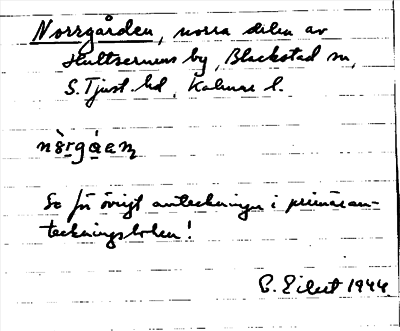 Norrgården, norra delen av
Hultserums by, Blackstad sn,
S. Tjust hd, Kalmar l.
nòrgáɑṇ
Se för övrigt anteckningar i primäran-
teckningsboken!
1944